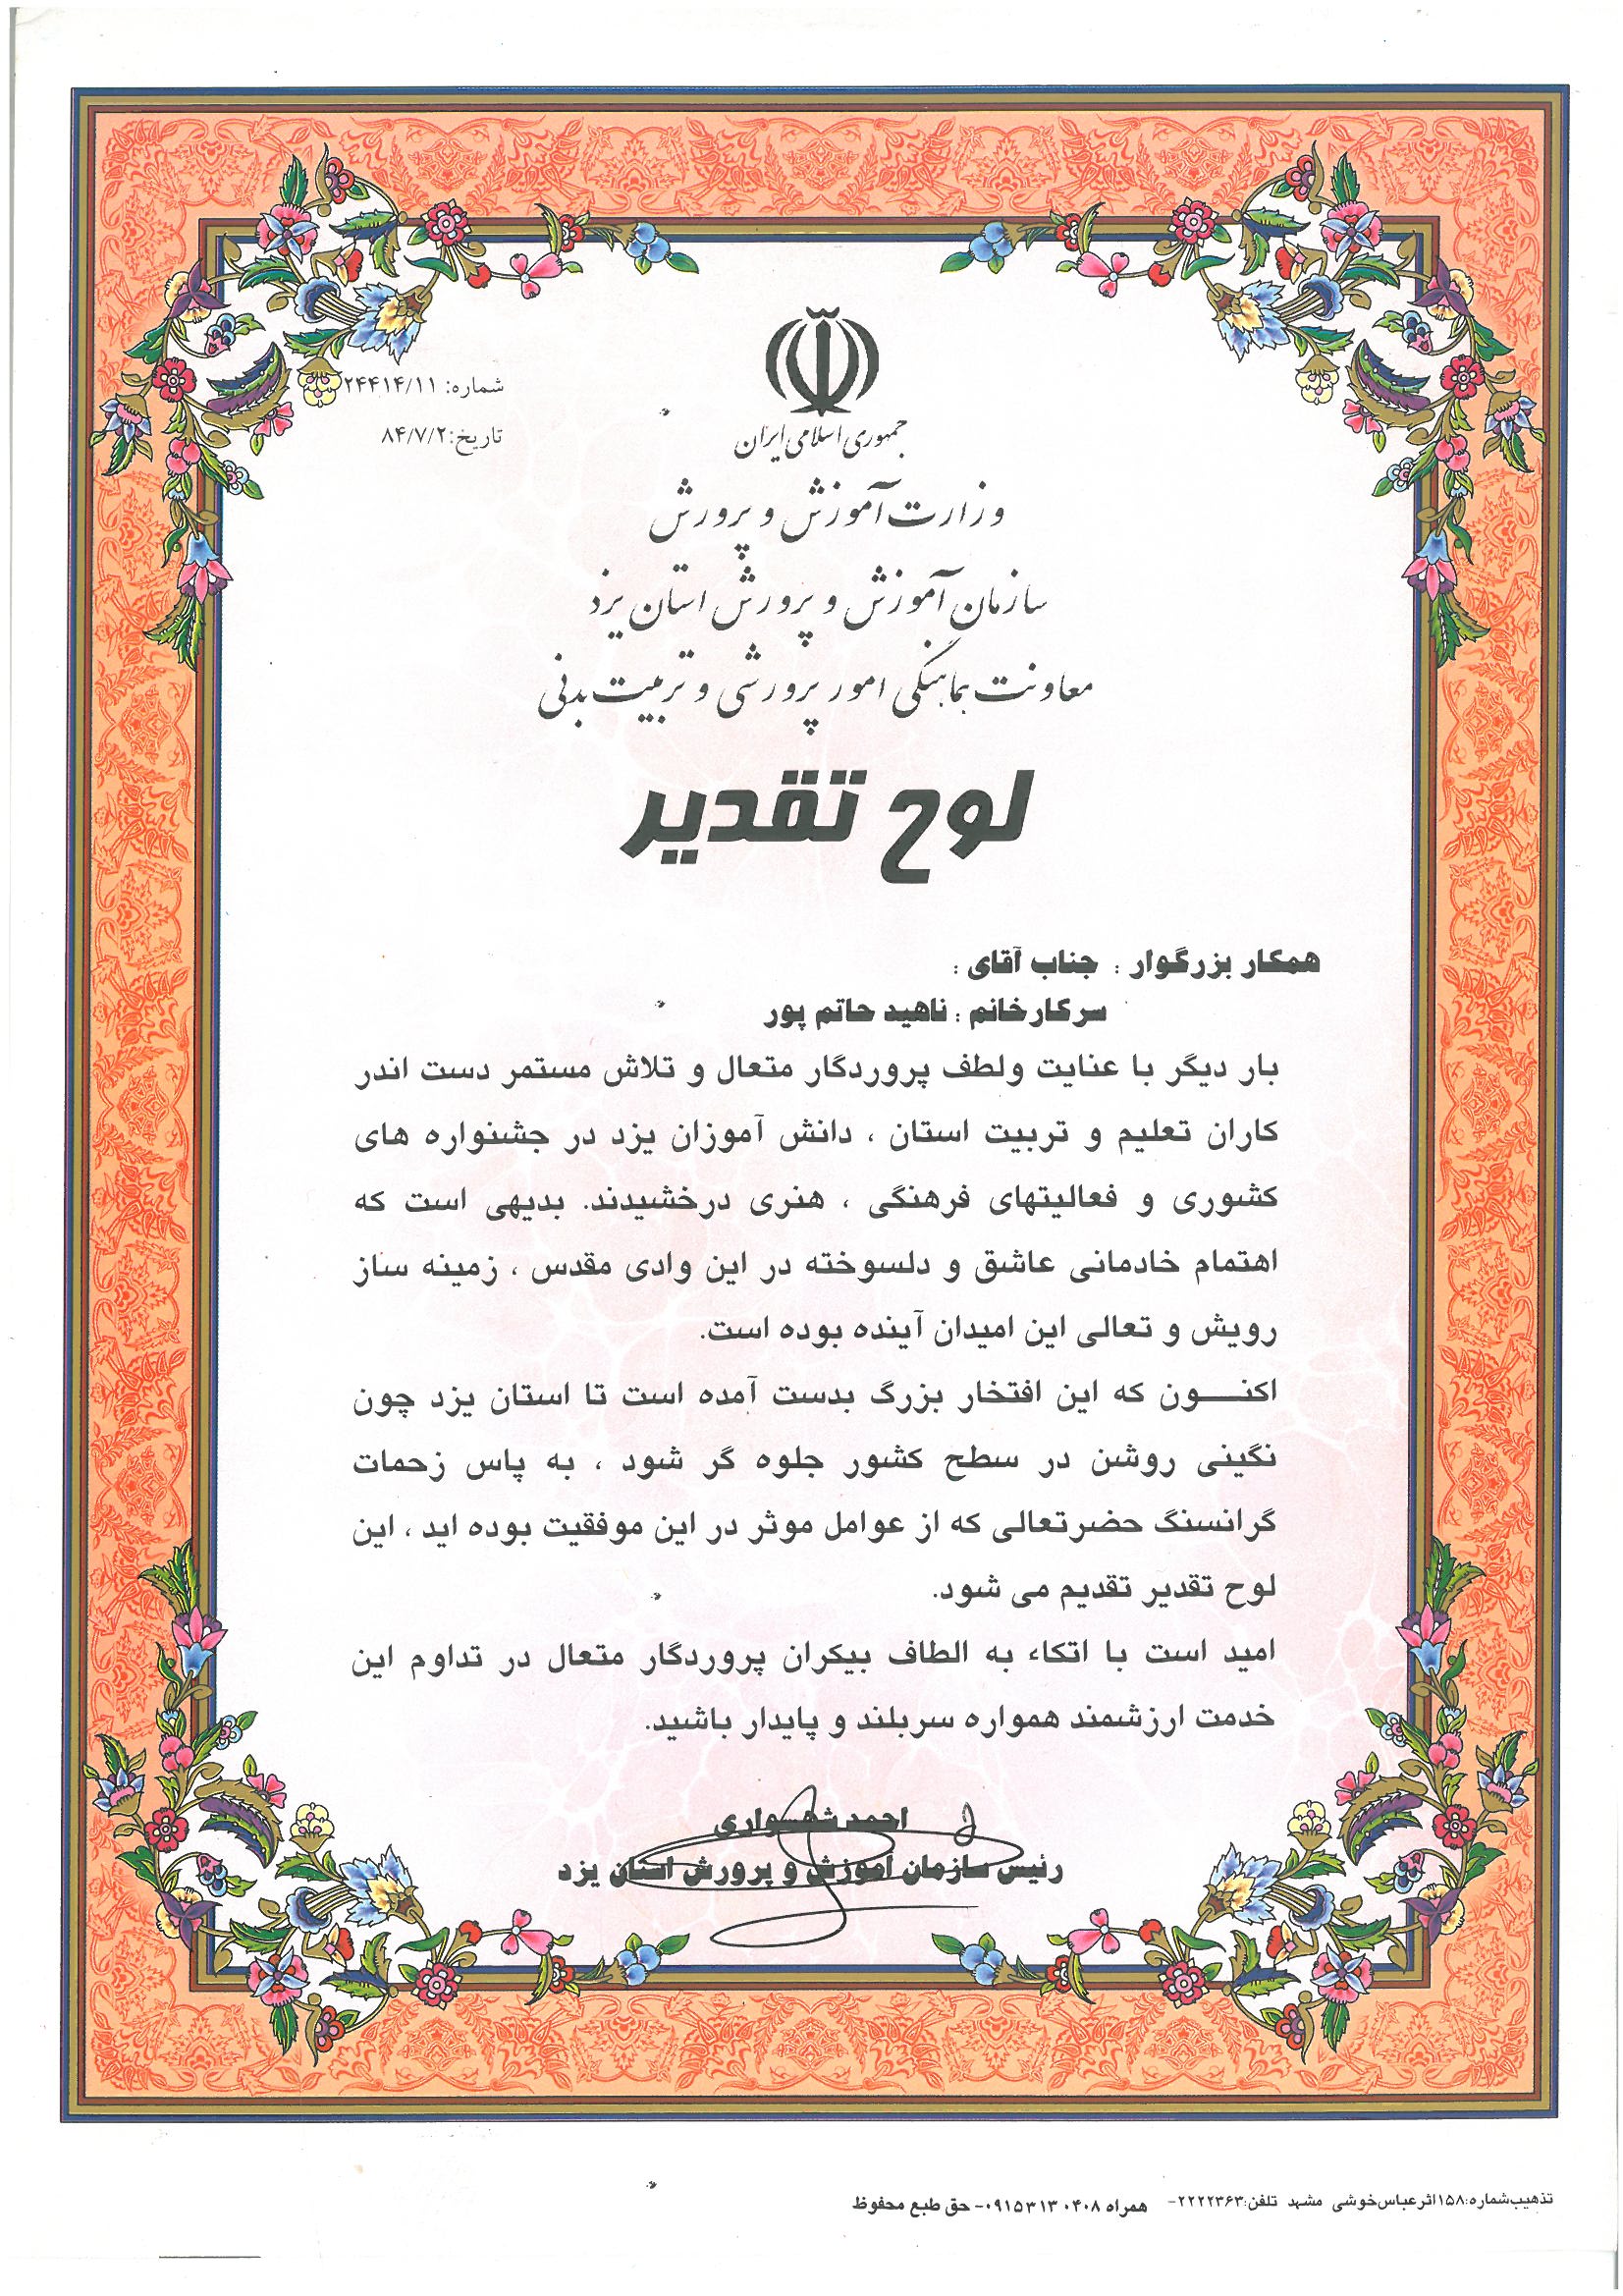 شماره: ۲۴۴۱۴/۱۱
تاریخ: ۸۴/۷/۲
جمهوری اسلامی ایران
وزارت آموزش و پرورش
سازمان آموزش و پرورش استان یزد
معاونت هماهنگی امور پرورشی و تربیت بدنی
لوح تقدیر
همکار بزرگوار : جناب آقای :
سرکار خانم : ناهید حاتم پور
بار دیگر با عنایت ولطف پروردگار متعال و تلاش مستمر دست اندر
کاران تعلیم و تربیت استان ، دانش آموزان یزد در جشنواره های
کشوری و فعالیتهای فرهنگی ، هنری درخشیدند. بدیهی است که
اهتمام خادمانی عاشق و دلسوخته در این وادی مقدس ، زمینه ساز
رویش و تعالی این امیدان آینده بوده است.
اکنــــون که این افتخار بزرگ بدست آمده است تا استان یزد چون
نگینی روشن در سطح کشور جلوه گر شود ، به پاس زحمات
گرانسنگ حضرتعالی که از عوامل موثر در این موفقیت بوده اید ، این
لوح تقدیر تقدیم می شود.
امید است با اتکاء به الطاف بیکران پروردگار متعال در تداوم این
خدمت ارزشمند همواره سربلند و پایدار باشید.
احمد شهسواری
رئیس سازمان آموزش و پرورش استان یزد
تذهیب شماره: ۱۵۸ اثر عباس خوشی مشهد تلفن: ۲۲۲۲۳۶۳- همراه ۰۹۱۵۳۱۳۰۴۰۸- حق طبع محفوظ